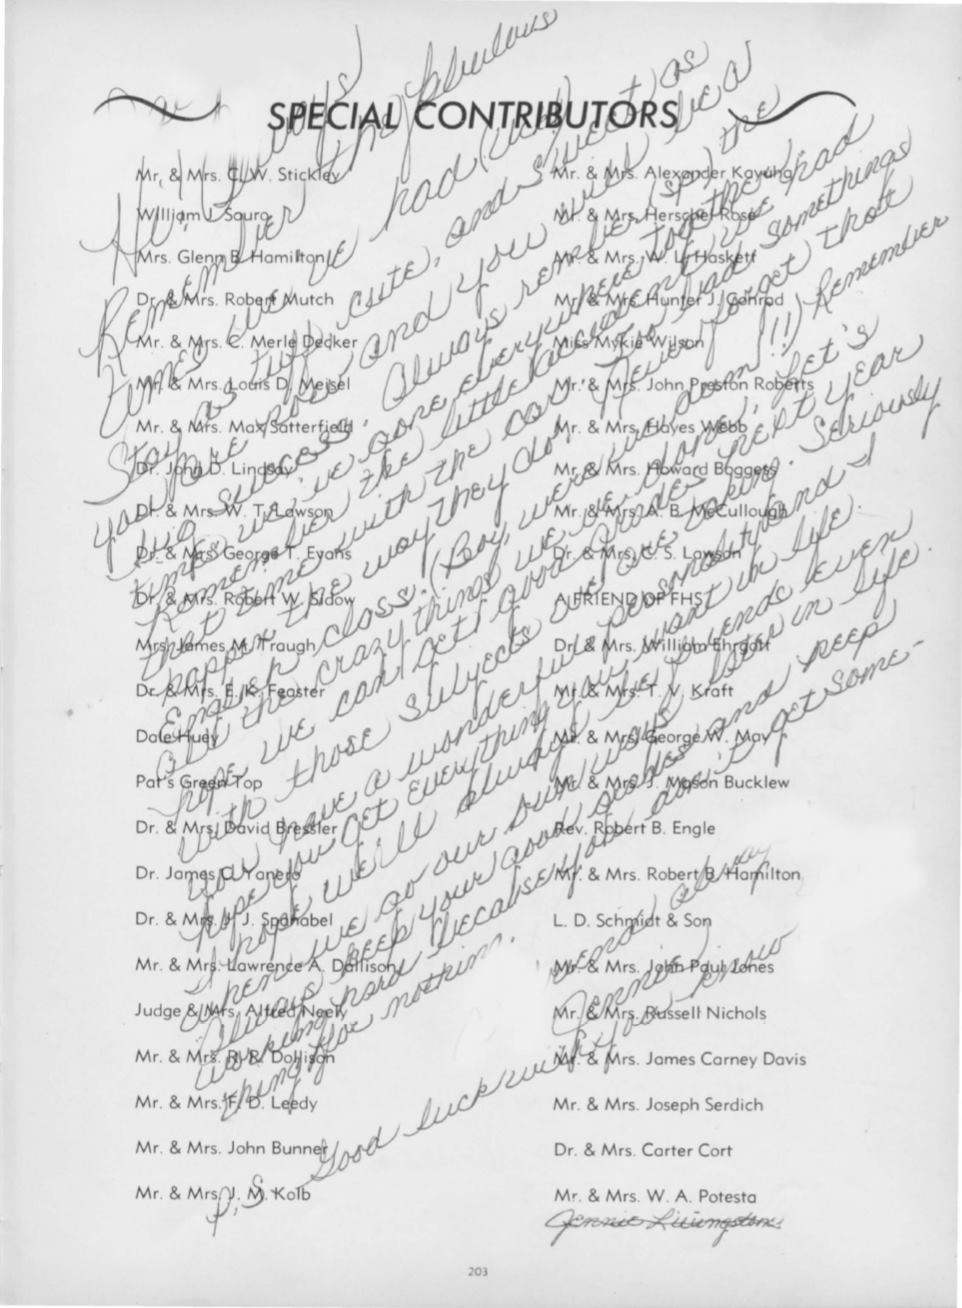 SPECIAL CONTRIBUTORS
Mr. & Mrs. C. W. Stickley
William J. Sauro
Mrs. Glenn B. Hamilton
Dr. & Mrs. Robert Mutch
Mr. & Mrs. C. Merle Decker
Mr. & Mrs. Louis D. Meisel
Mr. & Mrs. Max Satterfield
Dr. John D. Lindsay
Dr. & Mrs. W. T. Lawson
Dr. & Mrs. George T. Evans
Dr. & Mrs. Robert W. Sidow
Mrs. James M. Traugh
Dr. & Mrs. E. K. Feaster
Dale Huey
Pat's Green Top
Dr. & Mrs. David Bressler
Dr. James C. Yanero
Dr. & Mrs. J. J. Spanabel
Mr. & Mrs. Lawrence A. Dollison
Judge & Mrs. Alfred Neely
Mr. & Mrs. R. R. Dollison
Mr. & Mrs. F. D. Leedy
Mr. & Mrs. John Bunner
Mr. & Mrs. J. M. Kolb
Mr. & Mrs. Alexander
Mr. & Mrs. Herschel Rose
Mr. & Mrs. W. L. Haskett
Mr. & Mrs. Hunter J. Conrod
Miss Mykie Wilson
Mr. & Mrs. John Preston Roberts
Mr. & Mrs. Hayes Webb
Mr. & Mrs. Howard Boggess
Mr. & Mrs. A. B. McCullough
Dr. & Mrs. C. S. Lawson
A FRIEND OF FHS
Dr. & Mrs. William Ehrgott
Mr. & Mrs. T. V. Kraft
Mr. & Mrs. George W. May
Mr. & Mrs. J. Mason Bucklew
Rev. Robert B. Engle
Mr. & Mrs. Robert B. Hamilton
L. D. Schmidt & Son
Mr. & Mrs. John Paul Jones
Mr. & Mrs. Russell Nichols
Mr. & Mrs. James Carney Davis
Mr. & Mrs. Joseph Serdich
Dr. & Mrs. Carter Cort
Mr. & Mrs. W. A. Potesta
Hi,
Remember the fabulous
times we've had
Stay as tuff, cute, and sweet as
you are now and you will be a
big success. Always remember (sp) the
times we've gone everywhere together.
Remember the little accident we had
that time with the car. Too bad somethings
happen the way they do. Never forget that
English class. (Boy, were we dom!!) Remember
all the crazy things we've done. Let's
hope we can get good grades next year
with those subjects we are taking. Seriously
you have a wonderful personality and I
hope you get everything you want in life.
I hope we'll always be friends even
when we go our own ways later in life.
Always keep your good grades and keep
working hard because you don't get some-
thing for nothin.
Friend always
Jennie
P.S. Good luck with you know
Jennie Livingston
203